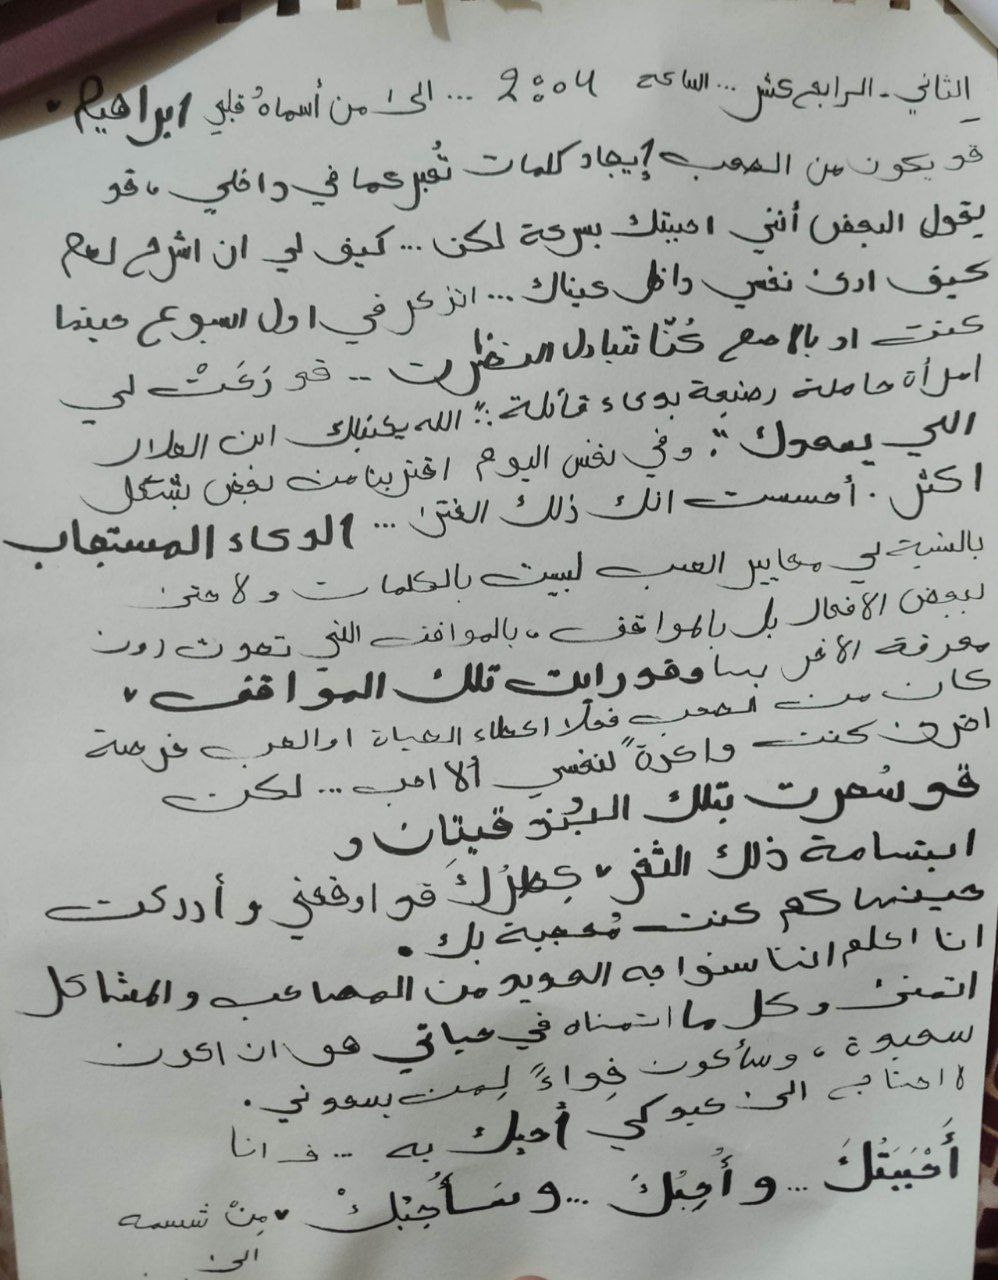 الثاني - الرابع عشر ... الساعة 2:04 ... الى من أسماهُ قلبي ابراهيم ♥
قد يكون من الصعب إيجاد كلمات تُعبر عما في داخلي ، قد
يقول البعض أنني احببتك بسرعة لكن ... كيف لي ان اشرح لهم
كيف ارى نفسي داخل عيناك ... اتذكر في اول اسبوع حينما
كنت اوبالاصح كُنّا نتبادل النظرات .. قد دَعَتْ لي
امرأة حاملة رضيعة بدعاء قائلة :" الله يكتبلك ابن الحلال
اللي يسعدك ". وفي نفس اليوم اقتربنا من بعض بشكل
اكثر . أحسست انك ذلك الفتى ... الدعاء المستجاب
بالنسبة لي معايير الحب ليست بالكلمات ولا حتى
ببعض الافعال بل بالمواقف ، بالمواقف التي تحدث دون
معرفة الاخر بها وقد رايت تلك المواقف ♥
كان من الصعب فعلا اعطاء الحياة او الحب فرصة
اخرى كنت واعدةً لنفسي ألا احب ... لكن
قد سُحرت بتلك البُندقيتان و
ابتسامة ذلك الثغر ♥ عِطرُكَ قد اوقعني و أدركت
حينها كم كنت مُعجبة بك .
انا اعلم اننا سنواجه العديد من المصاعب والمشاكل
اتمنى وكل ما اتمناه في حياتي هو ان اكون
سعيدة ، وسأكون فِداءً لِمن يسعدني .
لا احتاج الى عيد كي أحبك به ... ف انا
أَحْبَبَتُكَ ... و أُحِبُكَ ... و سَأُحِبُكْ ♥ مِنْ شمسه
الى